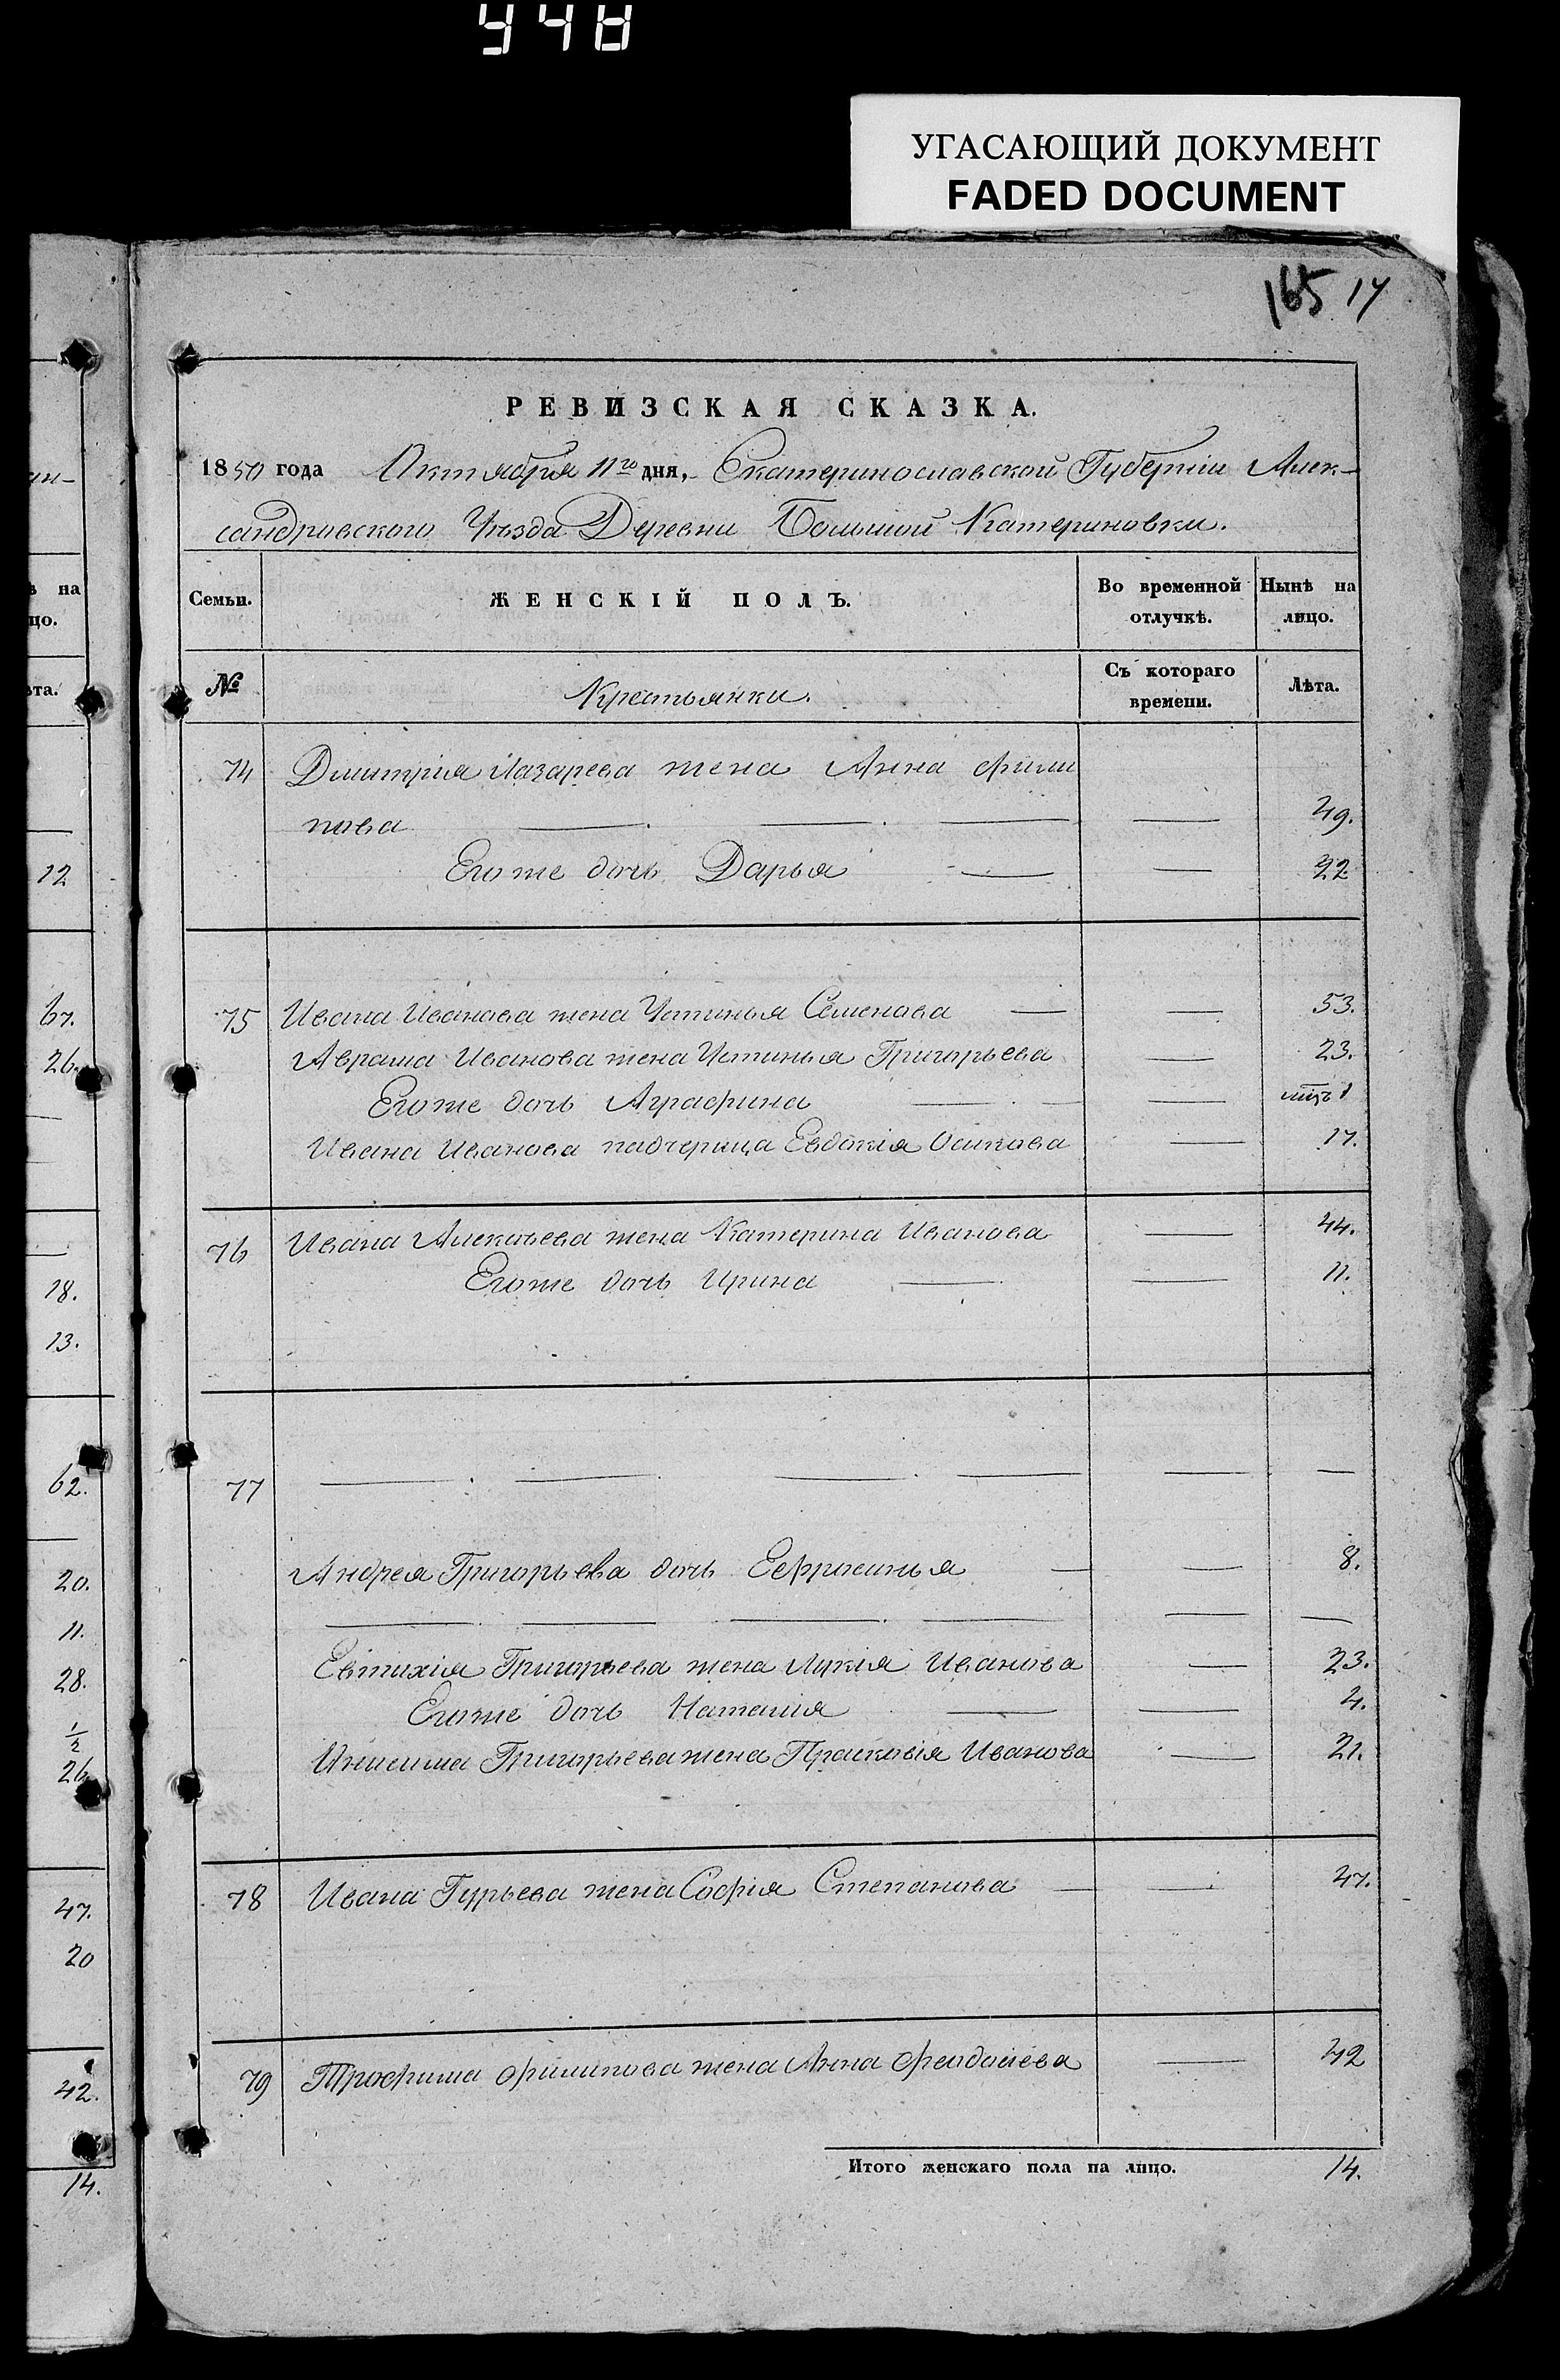 448
УГАСАЮЩИЙ ДОКУМЕНТ
FADED DOCUMENT
165 17
РЕВИЗСКАЯ СКАЗКА.
1850 года Октября 11го дня, Екатеринославской Губерніи Алек-
сандровского Уѣзда Деревни Большой Катериновки.
Семьи. ЖЕНСКІЙ ПОЛЪ. Во временной отлучкѣ. Нынѣ на лицо.
№ Крестьянки. Съ котораго времени. Лѣта.
74 Дмитрія Лазарева жена Анна Фили
пова 49.
Егоже дочь Дарья 22
75 Ивана Иванова жена Устинья Семенова 53.
Аврама Иванова жена Устинья Григорьева 23.
Егоже дочь Аграфина 1
Ивана Иванова падчерица Евдокія Осипова 17.
76 Ивана Алексѣева жена Катерина Иванова 44.
Егоже дочь Ирина 11.
77
Андрея Григорьева дочь Еефросинья 8.
Евтихія Григорьева жена Лукія Иванова 23.
Егоже дочь Наталія 4.
Григорьева жена Прасковія Иванова 21.
78 Ивана Гурьева жена Софія Степанова 47.
79 Трофима Филипова жена Анна Феодосіева 42
Итого женскаго пола на лицо. 14.
на
цо.
12
67.
26.
18.
13.
62.
20.
11.
28.
1/2
26
47.
20
42.
14.